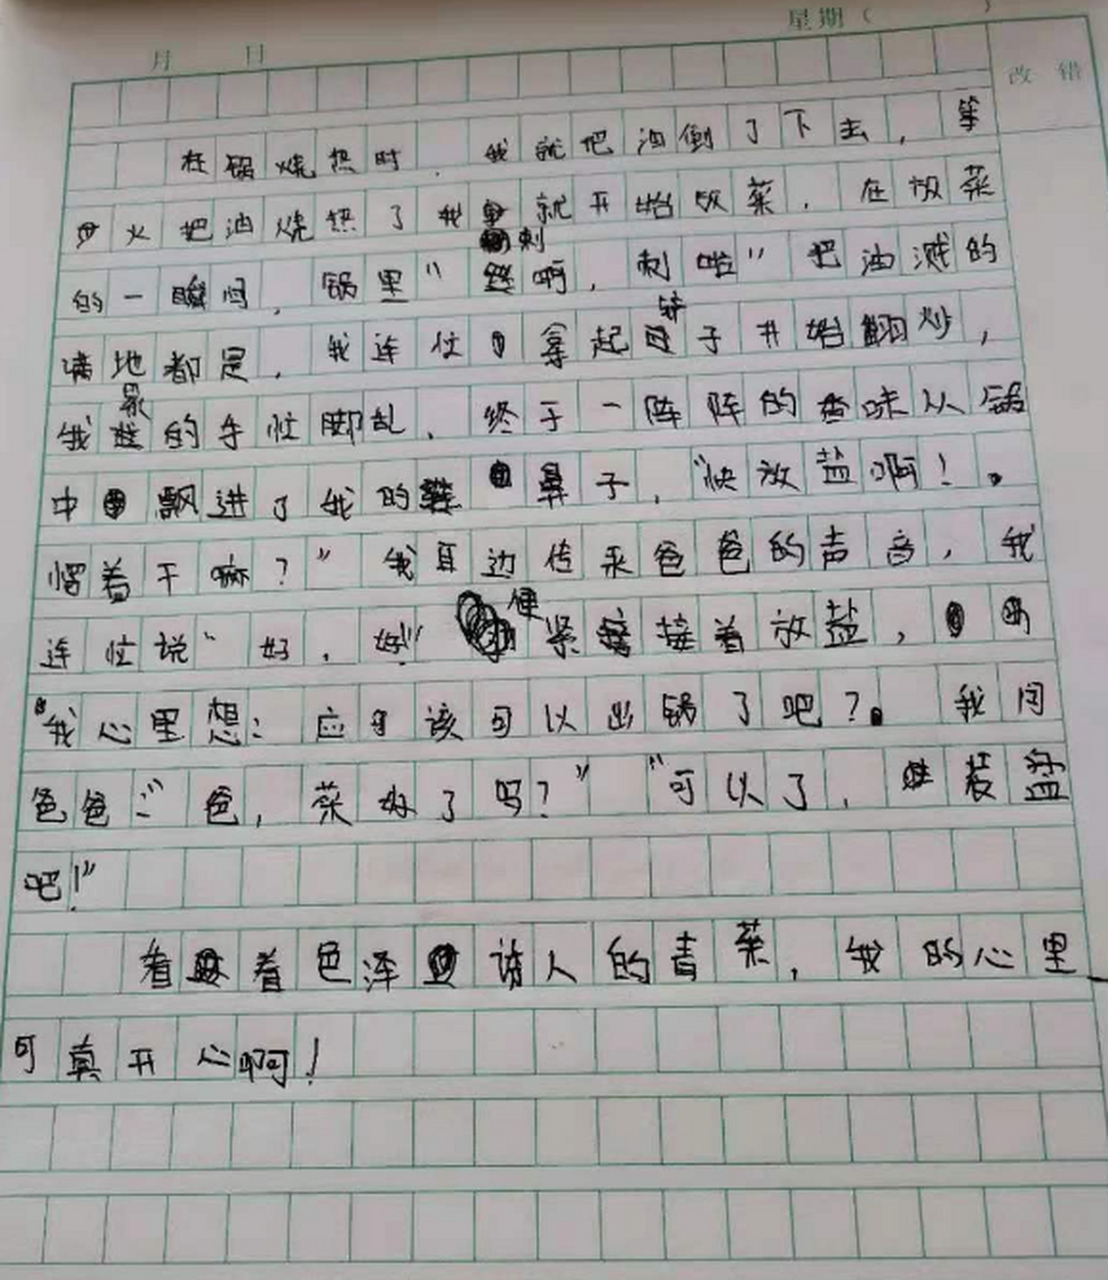 月 日 星期( )
改 错
在锅烧热时,我就把油倒了下去,等
火把油烧热了我就开始放菜,在放菜
刺
的一瞬间,锅里“啊,刺啦”把油溅的
满地都是,我连忙拿起子开始翻炒,
我的手忙脚乱,终于一阵阵的香味从锅
中飘进了我的鼻子,“快放盐啊!
愣着干嘛?”我耳边传来爸爸的声音,我
便
连忙说“好,好!”紧接着放盐,
“我心里想:应该可以出锅了吧?我问
爸爸:“爸,菜好了吗?”“可以了,装盘
吧!”
看着色泽诱人的青菜,我的心里
可真开心啊!